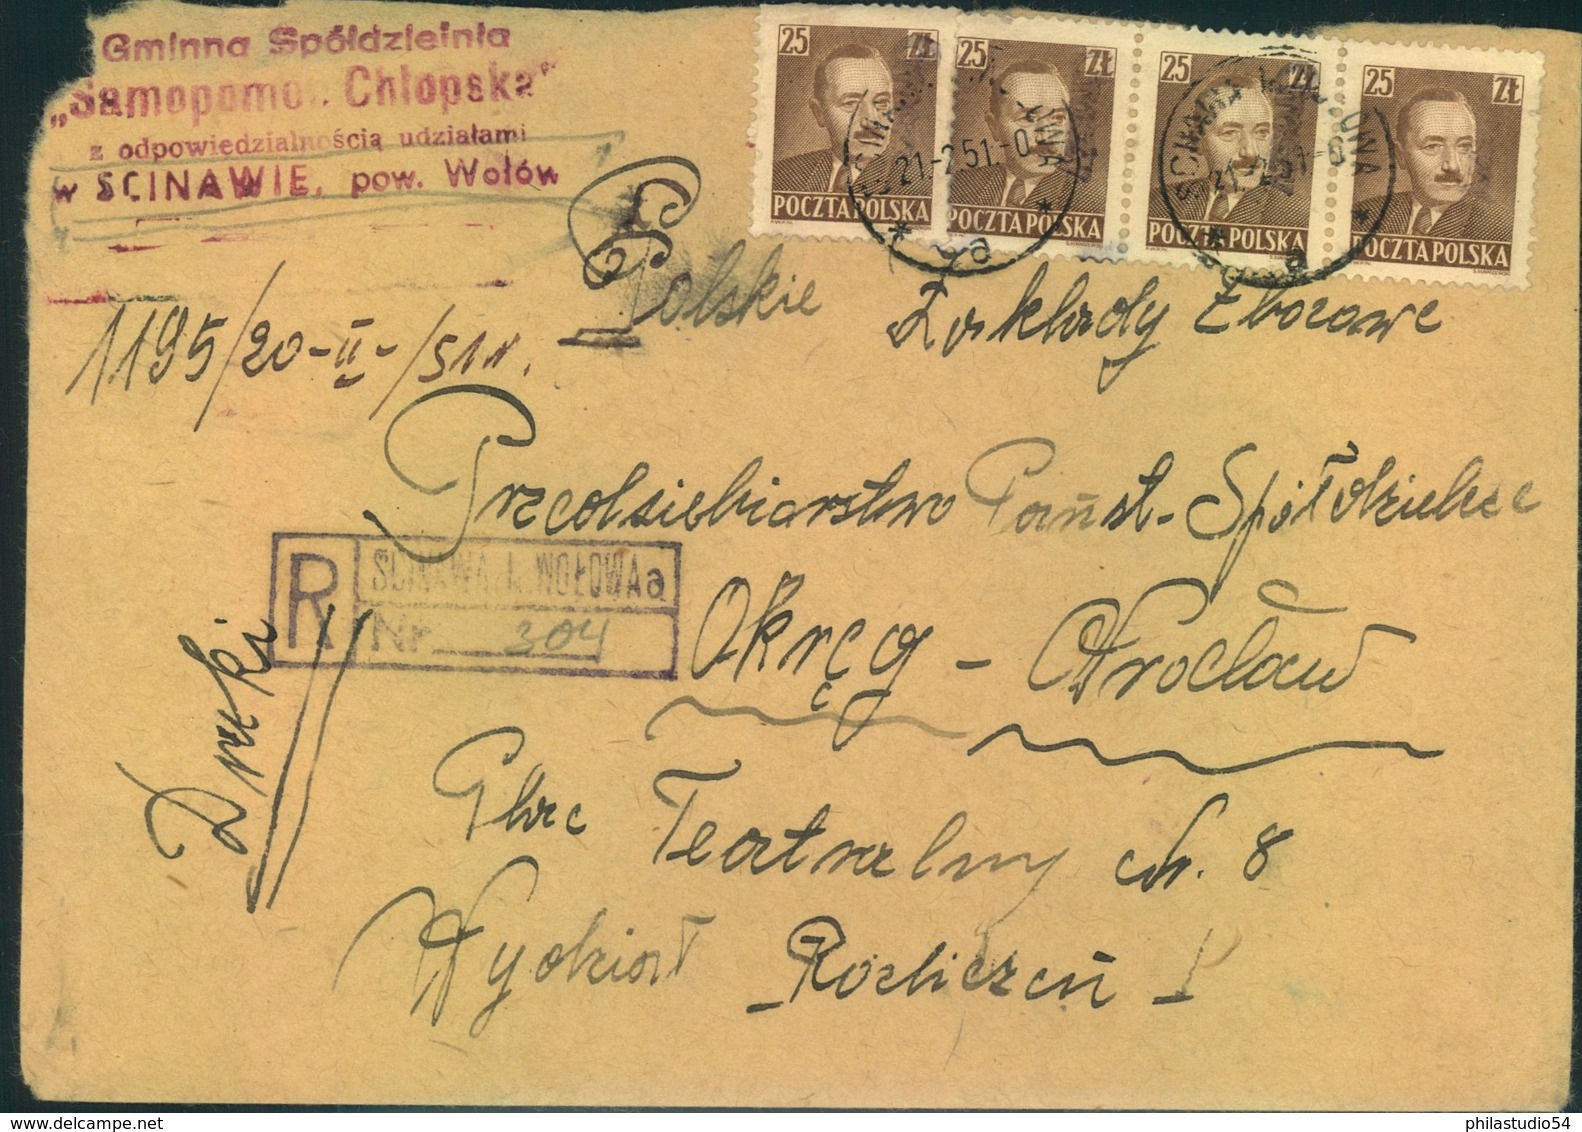 Gminna Spółdzielnia
„Samopomo.. Chłopska"
z odpowiedzialnością udziałami
w ŚCINAWIE, pow. Wołów
25 ZŁ
POCZTA POLSKA
25 ZŁ
POCZTA POLSKA
25 ZŁ
POCZTA POLSKA
25 ZŁ
POCZTA POLSKA
21.-2.51.-0
a
ŚCINAWA WOŁOWA
21.-2.51.-0
a
1195/20-II-/51 r.
Polskie Zakłady Zbożowe
Przedsiębiorstwo Państ.-Spółdzielcze
R
ŚCINAWA k. WOŁOWA a
Nr 304
Okręg - Wrocław
Druki
Plac Teatralny Nr. 8
Wydział Rozliczeń
philastudio54